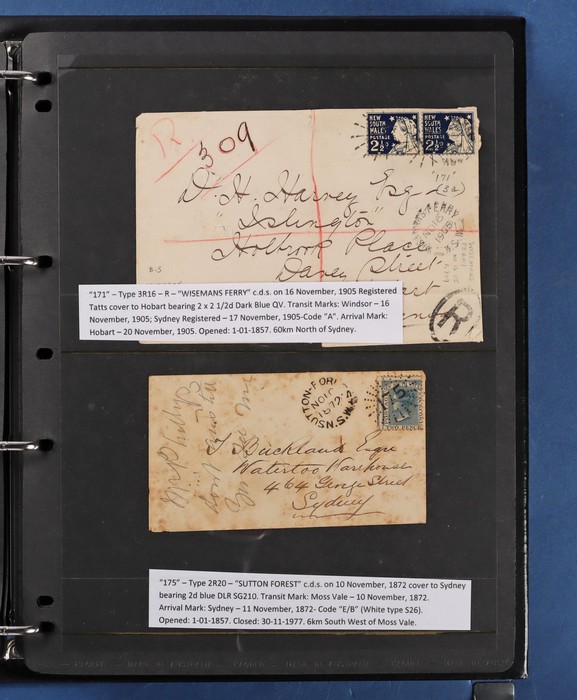 R
309
NEW SOUTH WALES POSTAGE 2½
NEW SOUTH WALES POSTAGE 2½
"171"
(3a)
D. H. Harvey Esq
"Islington"
Holbrook Place
Davey Street
B-5
R
"171" – Type 3R16 – R – "WISEMANS FERRY" c.d.s. on 16 November, 1905 Registered
Tatts cover to Hobart bearing 2 x 2 1/2d Dark Blue QV. Transit Marks: Windsor – 16
November, 1905; Sydney Registered – 17 November, 1905-Code "A". Arrival Mark:
Hobart – 20 November, 1905. Opened: 1-01-1857. 60km North of Sydney.
SUTTON-FOR
NO 10
1872
N.S.W
175
T Buckland Esqre
Waterloo Warehouse
464 George Street
Sydney
"175" – Type 2R20 – "SUTTON FOREST" c.d.s. on 10 November, 1872 cover to Sydney
bearing 2d blue DLR SG210. Transit Mark: Moss Vale – 10 November, 1872.
Arrival Mark: Sydney – 11 November, 1872- Code "E/B" (White type S26).
Opened: 1-01-1857. Closed: 30-11-1977. 6km South West of Moss Vale.